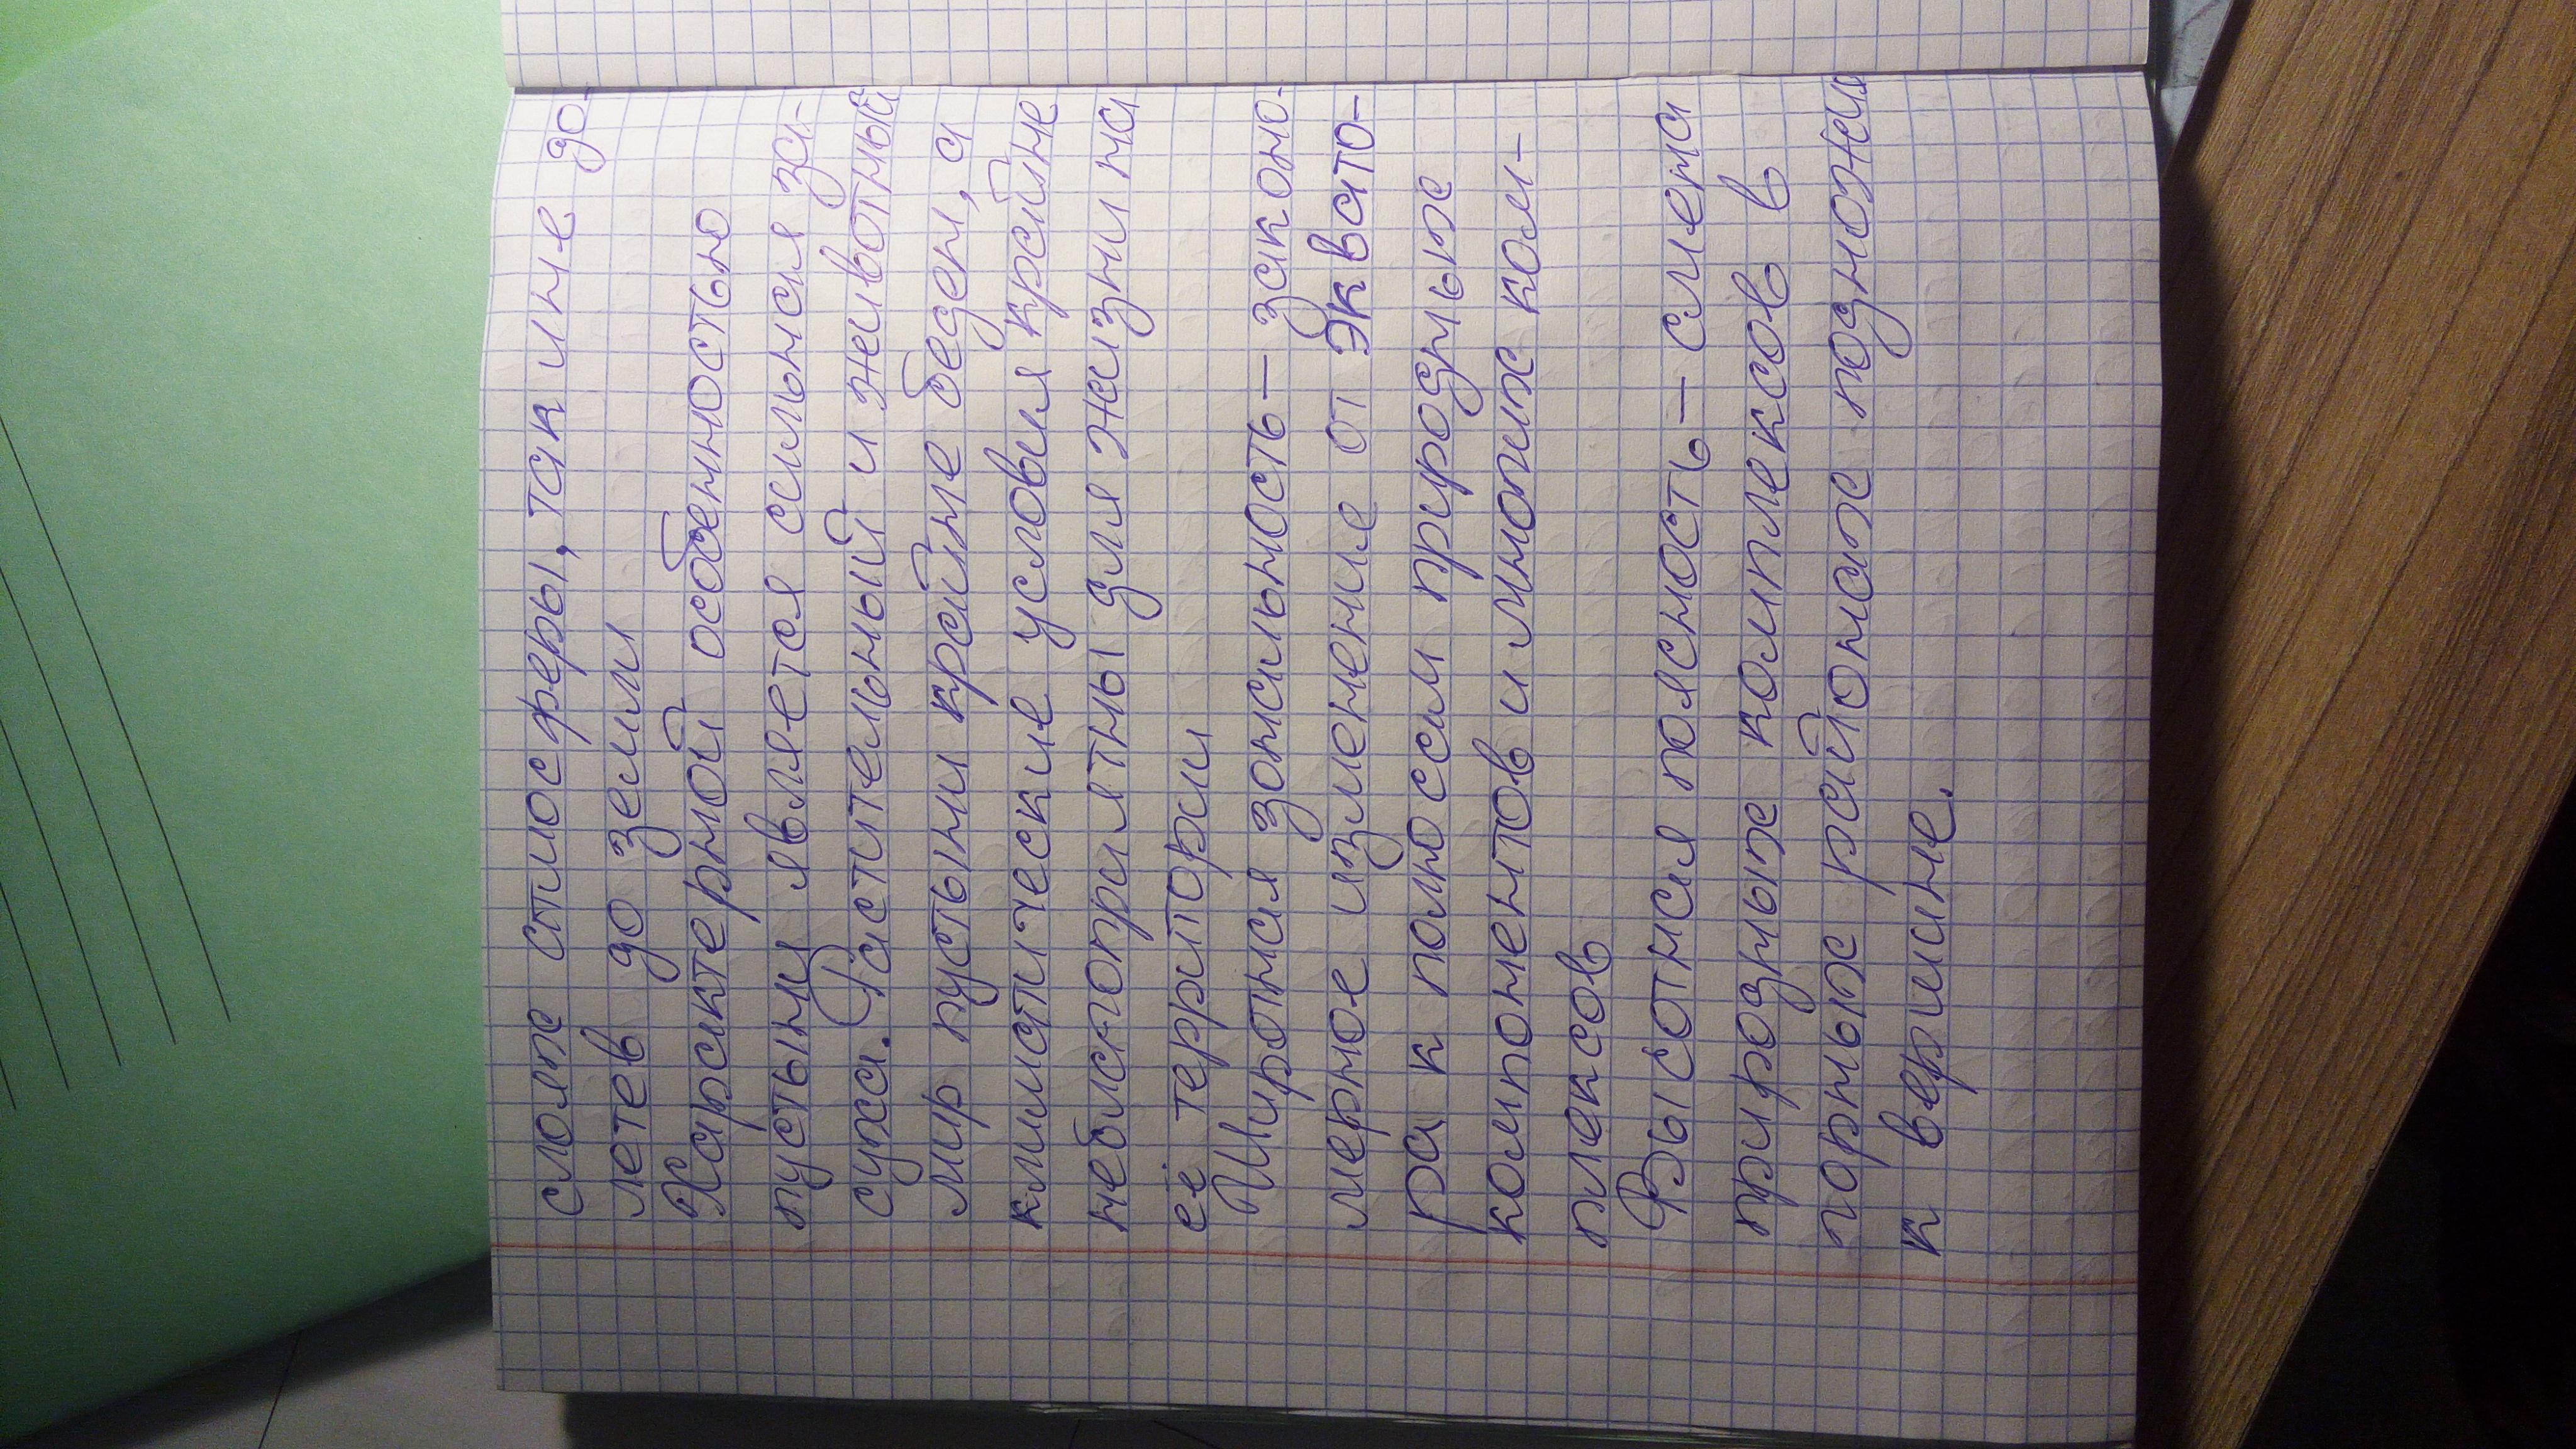 слоях атмосферы, так и не до-
летев до земли
Характерной особенностью
пустыни является сильная за-
суха. Растительный и животный
мир пустыни крайне беден, а
климатические условия крайне
неблагоприятны для жизни на
её територии
Широтная зональность – законо-
мерное изменение от эквато-
ра к полюсам природных
компонентов и многих ком-
плексов
Высотная поясность – смена
природных комплексов в
горных районах подножия
к вершине.